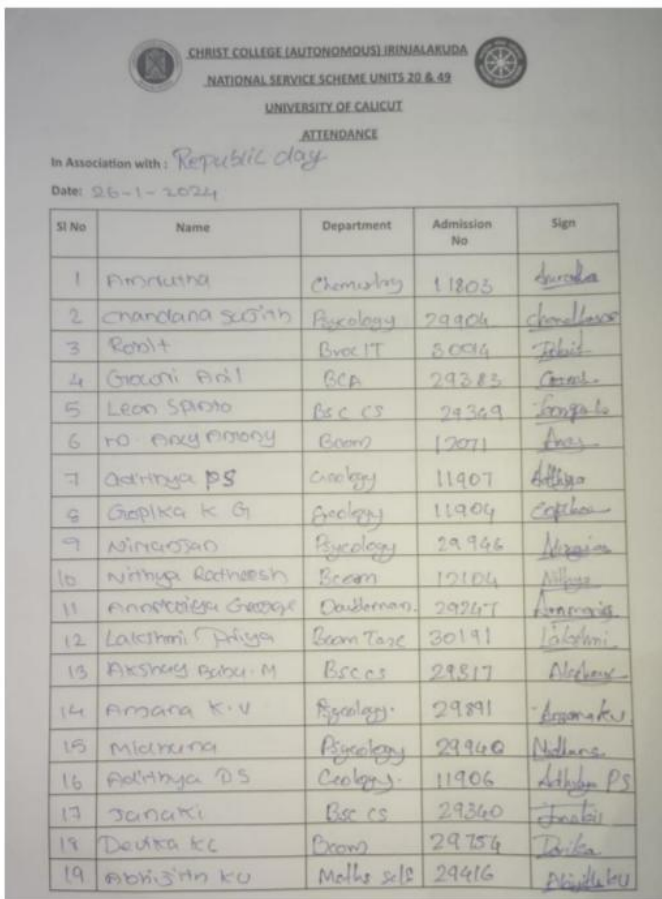 CHRIST COLLEGE (AUTONOMOUS) IRINJALAKUDA
NATIONAL SERVICE SCHEME UNITS 20 & 49
UNIVERSITY OF CALICUT
ATTENDANCE
In Association with : Republic day
Date: 26-1-2024
Sl No Name Department Admission No Sign
1 Amrutha Chemistry 11803
2 Chandana Sujith Psycology 29904
3 Ronit
4 Gowri Anil BCA 29383
5 Leon BSc CS 29349
6 Bcom 12071
7 Adithya PS Geology 11907 Adthya
8 Gopika K G Geology 11904 Gopika
9 Niranjan Psycology 29946
10 Nithya Ratheesh Bcom 12104 Nithya
11 Annmariya George 29247 Annmaria
12 Lakshmi Priya Bcom 30191 Lakshmi
13 Akshay Babu. M Bsc cs 29517
14 Anjana K.V Psycology. 29891 Anjana kv
15 Midhuna Psycology 29940
16 Adithya DS Geology. 11906 PS
17 Janaki Bsc cs 29340
18 Devika KC Bcom 29754 Devika
19 Abhijith KU Maths self 29416